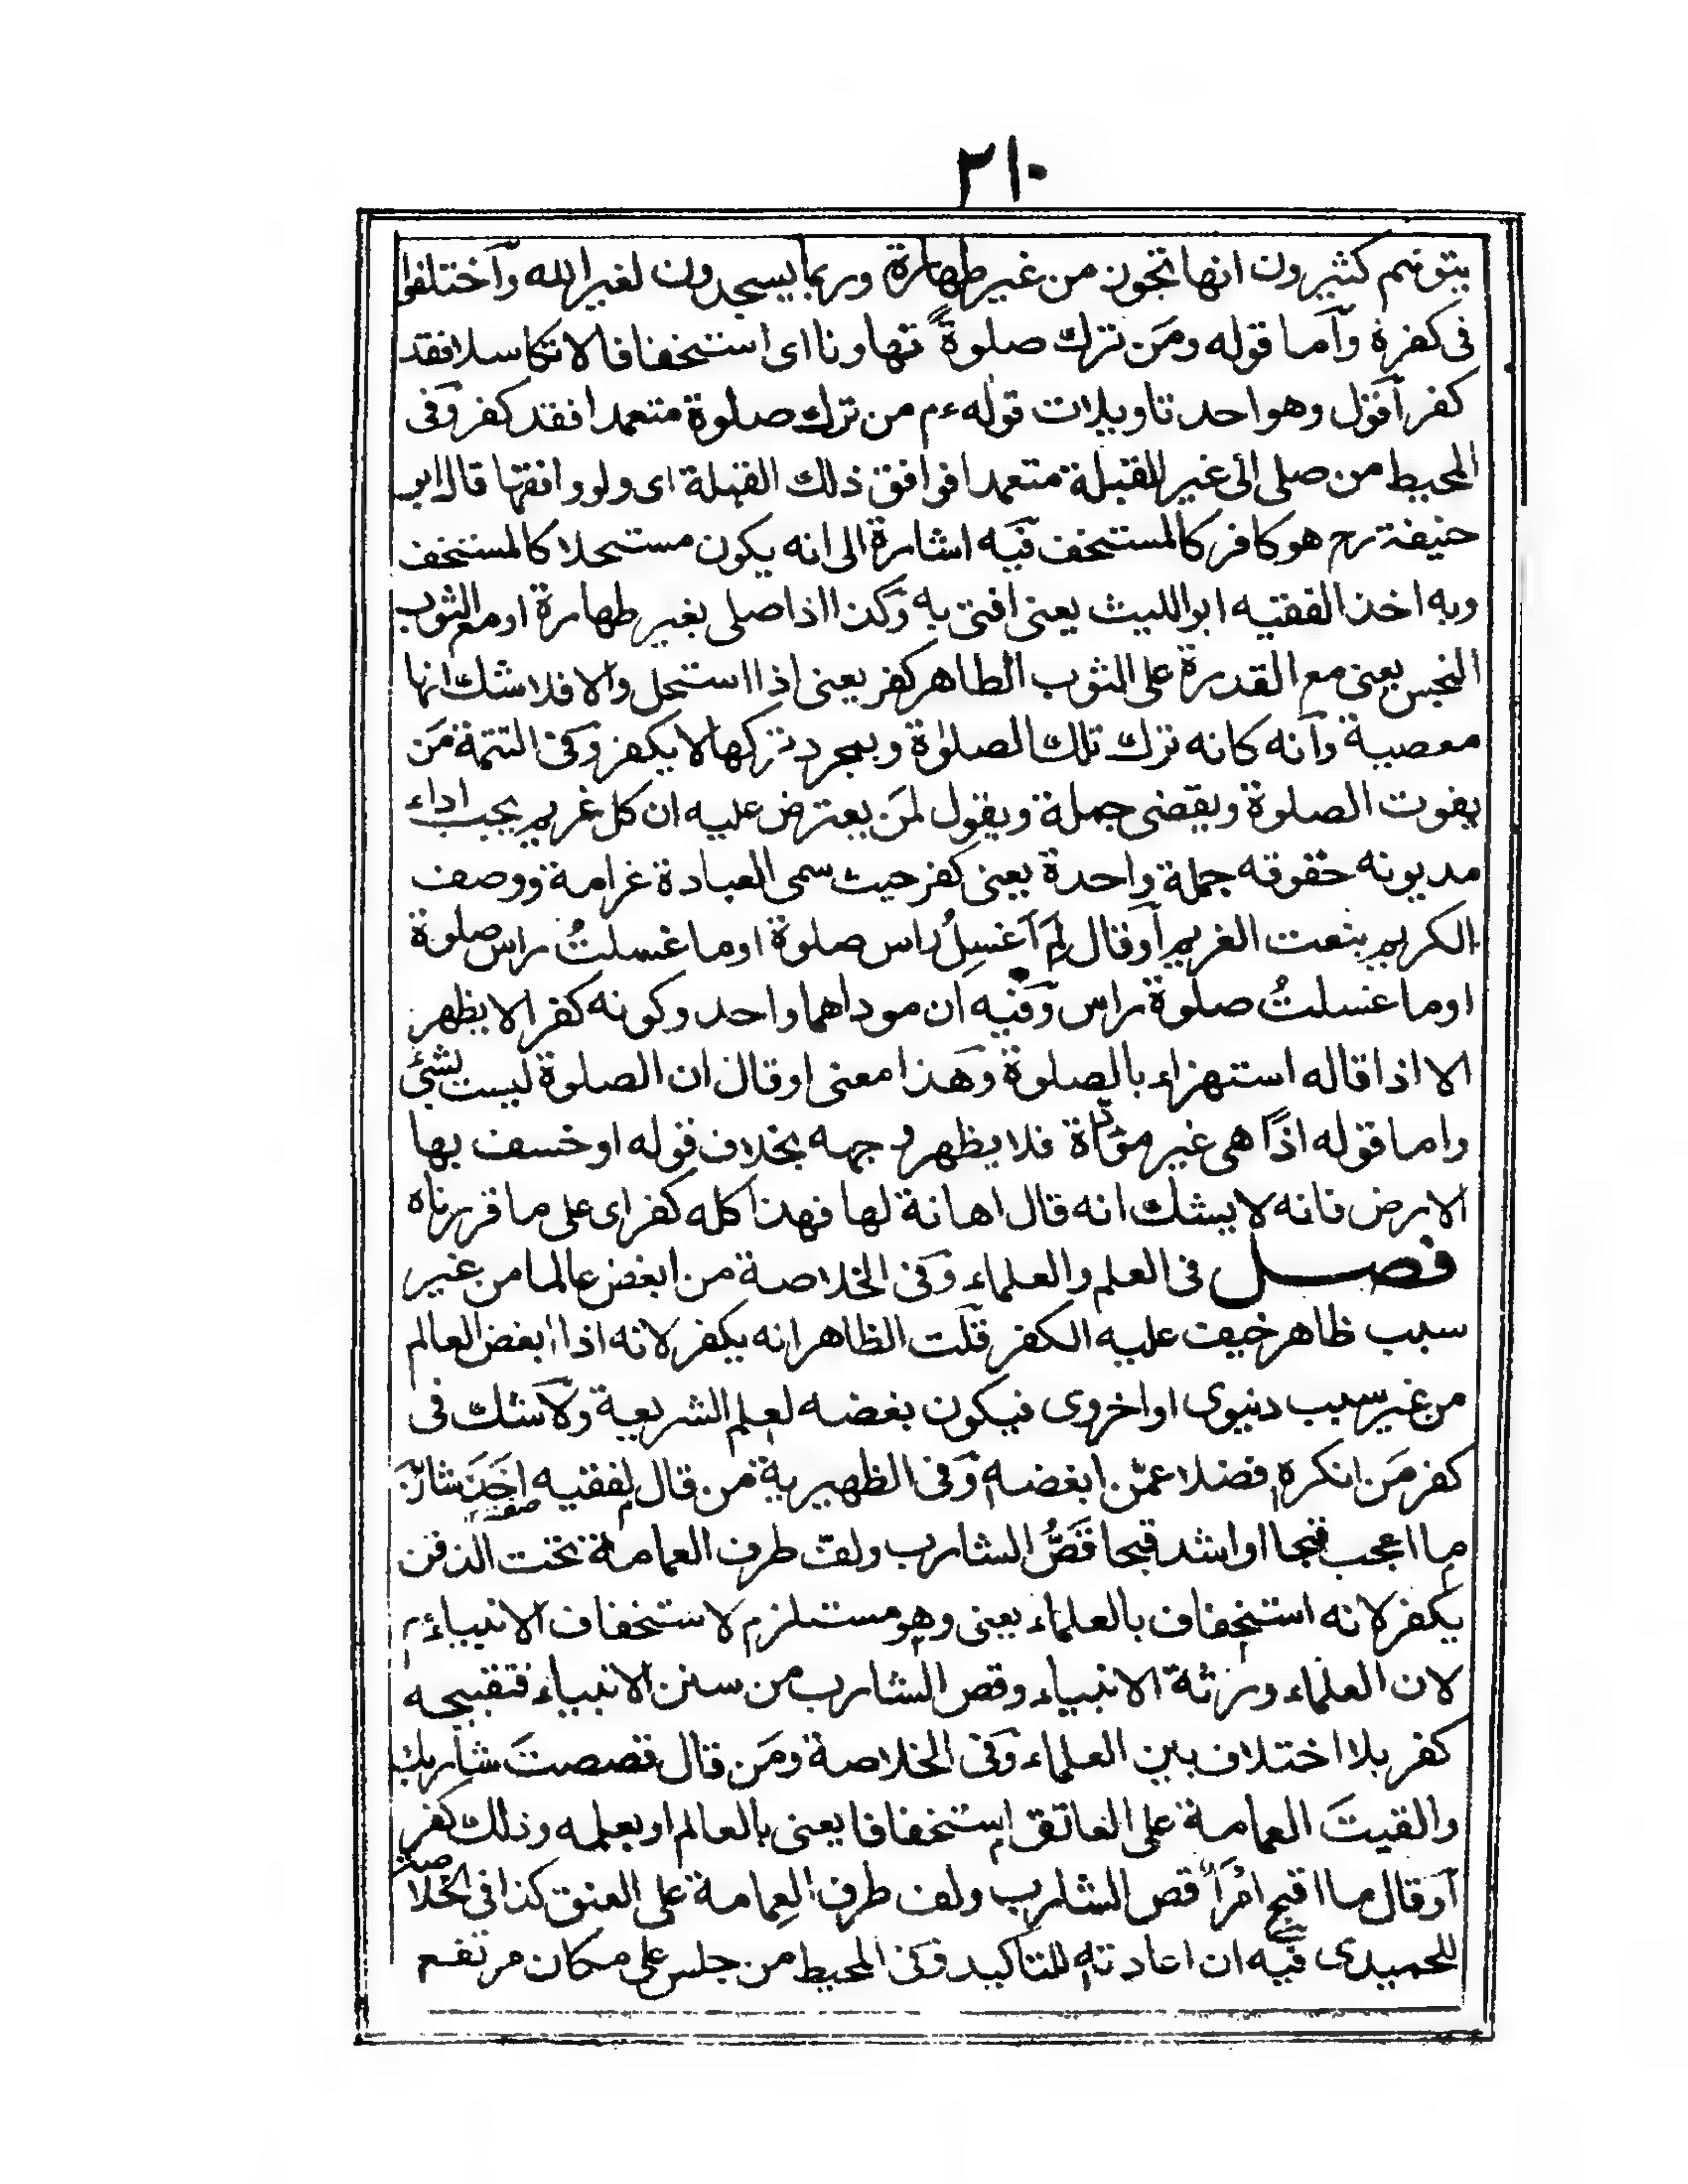 ٢١٠
يتوهم كثيرون انها تجوز من غير طهارة وربما يسجدون لغير الله وآختلفوا
فى كفره وآما قوله ومَن ترك صلوةً تهاونا اى استخفافا لا تكاسلا فقد
كفر آقول وهو احد تاويلات قوله ءم من ترك صلوة متعمدا فقد كفر وفى
المحيط من صلى الى غير القبلة متعمدا فوافق ذلك القبلة اى ولو وافقها قال ابو
حنيفة رح هو كافر كالمستخف فيه اشارة الى انه يكون مستحلا كالمستخف
وبه اخذ الفقيه ابو الليث يعنى افتى به وكذا اذا صلى بغير طهارة او مع الثوب
النجس يعنى مع القدرة على الثوب الطاهر كفر يعنى اذا استحل والا فلا شك انها
معصية وآنه كانه ترك تلك الصلوٰة وبمجرد تركها لا يكفر وفى التتمة مَن
يفوت الصلوة ويقضى جملة ويقول لمَن يعترض عليه ان كل غريم يجب اداء
مديونه حقوقه جملة واحدة يعنى كفر حيث سمى العبادة غرامة ووصف
الكريم بنعت الغريم آو قال لم آغسِلُ راس صلوة او ما غسلتُ راس صلوة
او ما غسلتُ صلوة راس وفيه ان موداهما واحد وكونه كفرا لا يظهر
الا اذا قاله استهزاء بالصلوة وهذا معنى او قال ان الصلوة ليست بشئ
واما قوله اذًا هى غير موَدّاة فلا يظهر وجهه بخلاف قوله او خسف بها
الارض فانه لا يشك انه قال اهانة لها فهذا كله كفر اى على ما قررناه
فصل فى العلم والعلماء وفى الخلاصة من ابغض عالما من غير
سبب ظاهر خيف عليه الكفر قلت الظاهر انه يكفر لانه اذا ابغض العالم
من غير سبب دنيوى او اخروى فيكون بغضه لعلم الشريعة ولا شك فى
كفر مَن انكره فضلا عمّن ابغضه وفى الظهيرية من قال لفقيه اخذ شاربه
ما اعجب قبحا او اشد قبحا قَصُّ الشارب ولفّ طرف العمامة تحت الذقن
يكفر لانه استخفاف بالعلماء يعنى وهو مستلزم لاستخفاف الانبياء ءم
لان العلماء ورثة الانبياء وقص الشارب من سنن الانبياء فتقبيحه
كفر بلا اختلاف بين العلماء وفى الخلاصة ومَن قال قصصتَ شاربك
والقيتَ العمامة على العاتق استخفافا يعنى بالعالم او بعلمه وذلك كفر
آو قال ما اقبح امْرَأً قص الشارب ولف طرف العِمامة على العنق كذا فى الخلاصة
للحميدى فيه ان اعادته للتاكيد وفى المحيط من جلس على مكان مرتفع